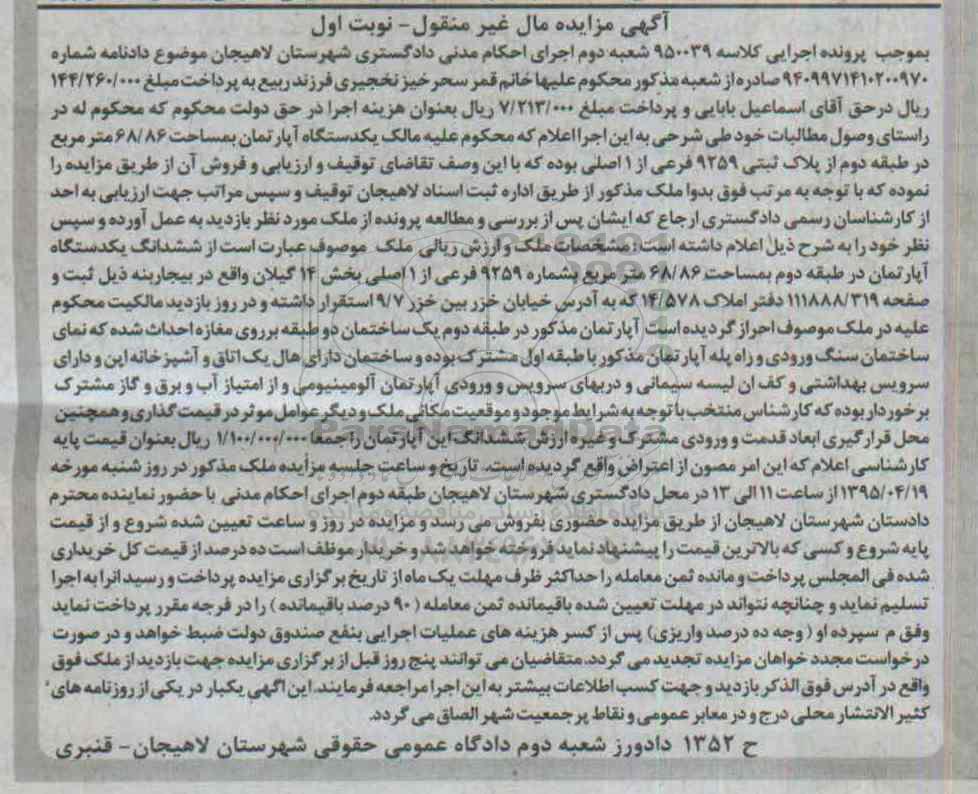 آگهی مزایده مال غیر منقول- نوبت اول
بموجب پرونده اجرایی کلاسه ۹۵۰۰۳۹ شعبه دوم اجرای احکام مدنی دادگستری شهرستان لاهیجان موضوع دادنامه شماره
۹۴۰۹۹۷۱۴۱۰۲۰۰۹۷۰ صادره از شعبه مذکور محکوم علیها خانم قمر سحر خیز نخجیری فرزند ربیع به پرداخت مبلغ ۱۴۴/۲۶۰/۰۰۰
ریال درحق آقای اسماعیل بابایی و پرداخت مبلغ ۷/۲۱۳/۰۰۰ ریال بعنوان هزینه اجرا در حق دولت محکوم که محکوم له در
راستای وصول مطالبات خود طی شرحی به این اجرا اعلام که محکوم علیه مالک یکدستگاه آپارتمان بمساحت ۶۸/۸۶ متر مربع
در طبقه دوم از پلاک ثبتی ۹۲۵۹ فرعی از ۱ اصلی بوده که با این وصف تقاضای توقیف و ارزیابی و فروش آن از طریق مزایده را
نموده که با توجه به مرتب فوق بدوا ملک مذکور از طریق اداره ثبت اسناد لاهیجان توقیف و سپس مراتب جهت ارزیابی به احد
از کارشناسان رسمی دادگستری ارجاع که ایشان پس از بررسی و مطالعه پرونده از ملک مورد نظر بازدید به عمل آورده و سپس
نظر خود را به شرح ذیل اعلام داشته است: مشخصات ملک و ارزش ریالی ملک موصوف عبارت است از ششدانگ یکدستگاه
آپارتمان در طبقه دوم بمساحت ۶۸/۸۶ متر مربع بشماره ۹۲۵۹ فرعی از ۱ اصلی بخش ۱۴ گیلان واقع در بیجاربنه ذیل ثبت و
صفحه ۱۱۱۸۸۸/۳۱۹ دفتر املاک ۱۴/۵۷۸ که به آدرس خیابان خزر بین خزر ۹/۷ استقرار داشته و در روز بازدید مالکیت محکوم
علیه در ملک موصوف احراز گردیده است آپارتمان مذکور در طبقه دوم یک ساختمان دو طبقه برروی مغازه احداث شده که نمای
ساختمان سنگ ورودی و راه پله آپارتمان مذکور با طبقه اول مشترک بوده و ساختمان دارای هال یک اتاق و آشپزخانه اپن و دارای
سرویس بهداشتی و کف ان لیسه سیمانی و دربهای سرویس و ورودی آپارتمان آلومینیومی و از امتیاز آب و برق و گاز مشترک
برخوردار بوده که کارشناس منتخب با توجه به شرایط موجود و موقعیت مکانی ملک و دیگر عوامل موثر در قیمت گذاری و همچنین
محل قرارگیری ابعاد قدمت و ورودی مشترک و غیره ارزش ششدانگ این آپارتمان را جمعا ۱/۱۰۰/۰۰۰/۰۰۰ ریال بعنوان قیمت پایه
کارشناسی اعلام که این امر مصون از اعتراض واقع گردیده است. تاریخ و ساعت جلسه مزایده ملک مذکور در روز شنبه مورخه
۱۳۹۵/۰۴/۱۹ از ساعت ۱۱ الی ۱۳ در محل دادگستری شهرستان لاهیجان طبقه دوم اجرای احکام مدنی با حضور نماینده محترم
دادستان شهرستان لاهیجان از طریق مزایده حضوری بفروش می رسد و مزایده در روز و ساعت تعیین شده شروع و از قیمت
پایه شروع و کسی که بالاترین قیمت را پیشنهاد نماید فروخته خواهد شد و خریدار موظف است ده درصد از قیمت کل خریداری
شده فی المجلس پرداخت و مانده ثمن معامله را حداکثر ظرف مهلت یک ماه از تاریخ برگزاری مزایده پرداخت و رسید انرا به اجرا
تسلیم نماید و چنانچه نتواند در مهلت تعیین شده باقیمانده ثمن معامله (۹۰ درصد باقیمانده) را در فرجه مقرر پرداخت نماید
وفق م سپرده او (وجه ده درصد واریزی) پس از کسر هزینه های عملیات اجرایی بنفع صندوق دولت ضبط خواهد و در صورت
درخواست مجدد خواهان مزایده تجدید می گردد. متقاضیان می توانند پنج روز قبل از برگزاری مزایده جهت بازدید از ملک فوق
واقع در آدرس فوق الذکر بازدید و جهت کسب اطلاعات بیشتر به این اجرا مراجعه فرمایند. این اگهی یکبار در یکی از روزنامه های
کثیر الانتشار محلی درج و در معابر عمومی و نقاط پرجمعیت شهر الصاق می گردد.
ح ۱۳۵۲ دادورز شعبه دوم دادگاه عمومی حقوقی شهرستان لاهیجان- قنبری
ParsNamadData